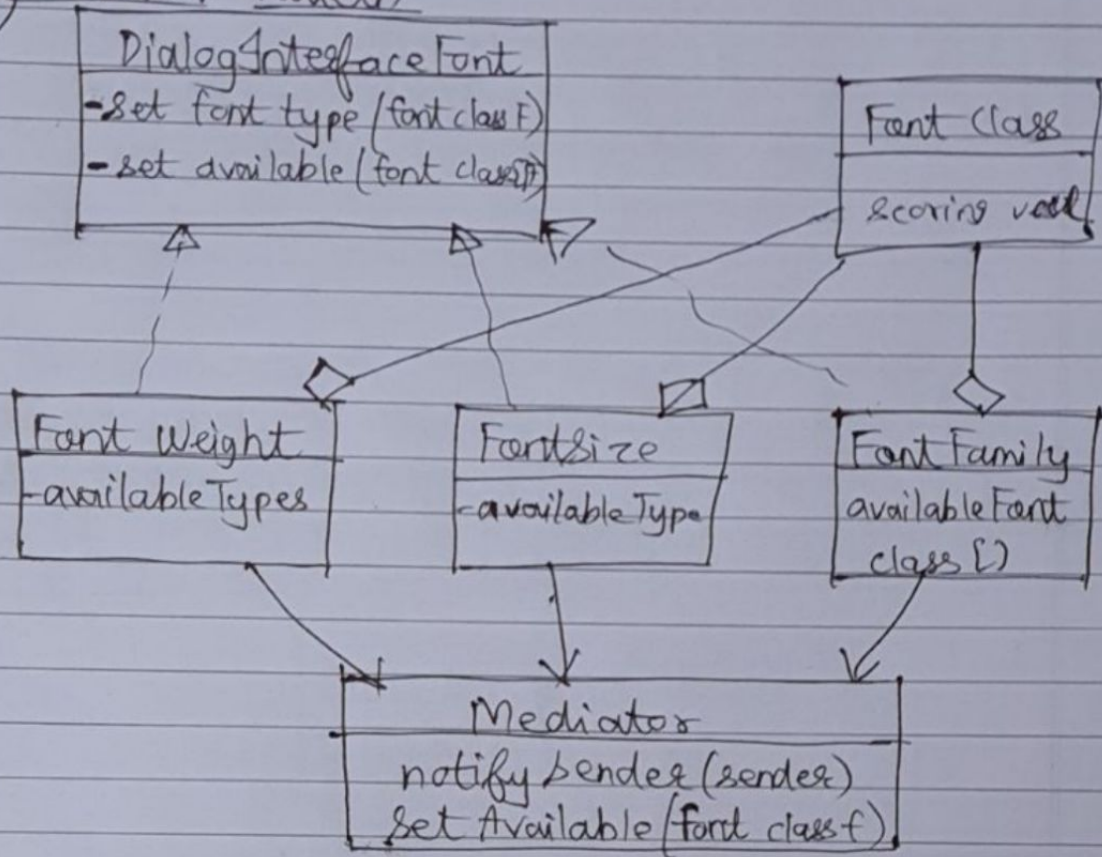 DialogInterfaceFont
-set font type (font class F)
- set available (font class
Font Class
scoring
Font Weight
-availableTypes
FontSize
-availableType
FontFamily
availableFont
class []
Mediator
notify sender (sender)
Set Available (font class f)